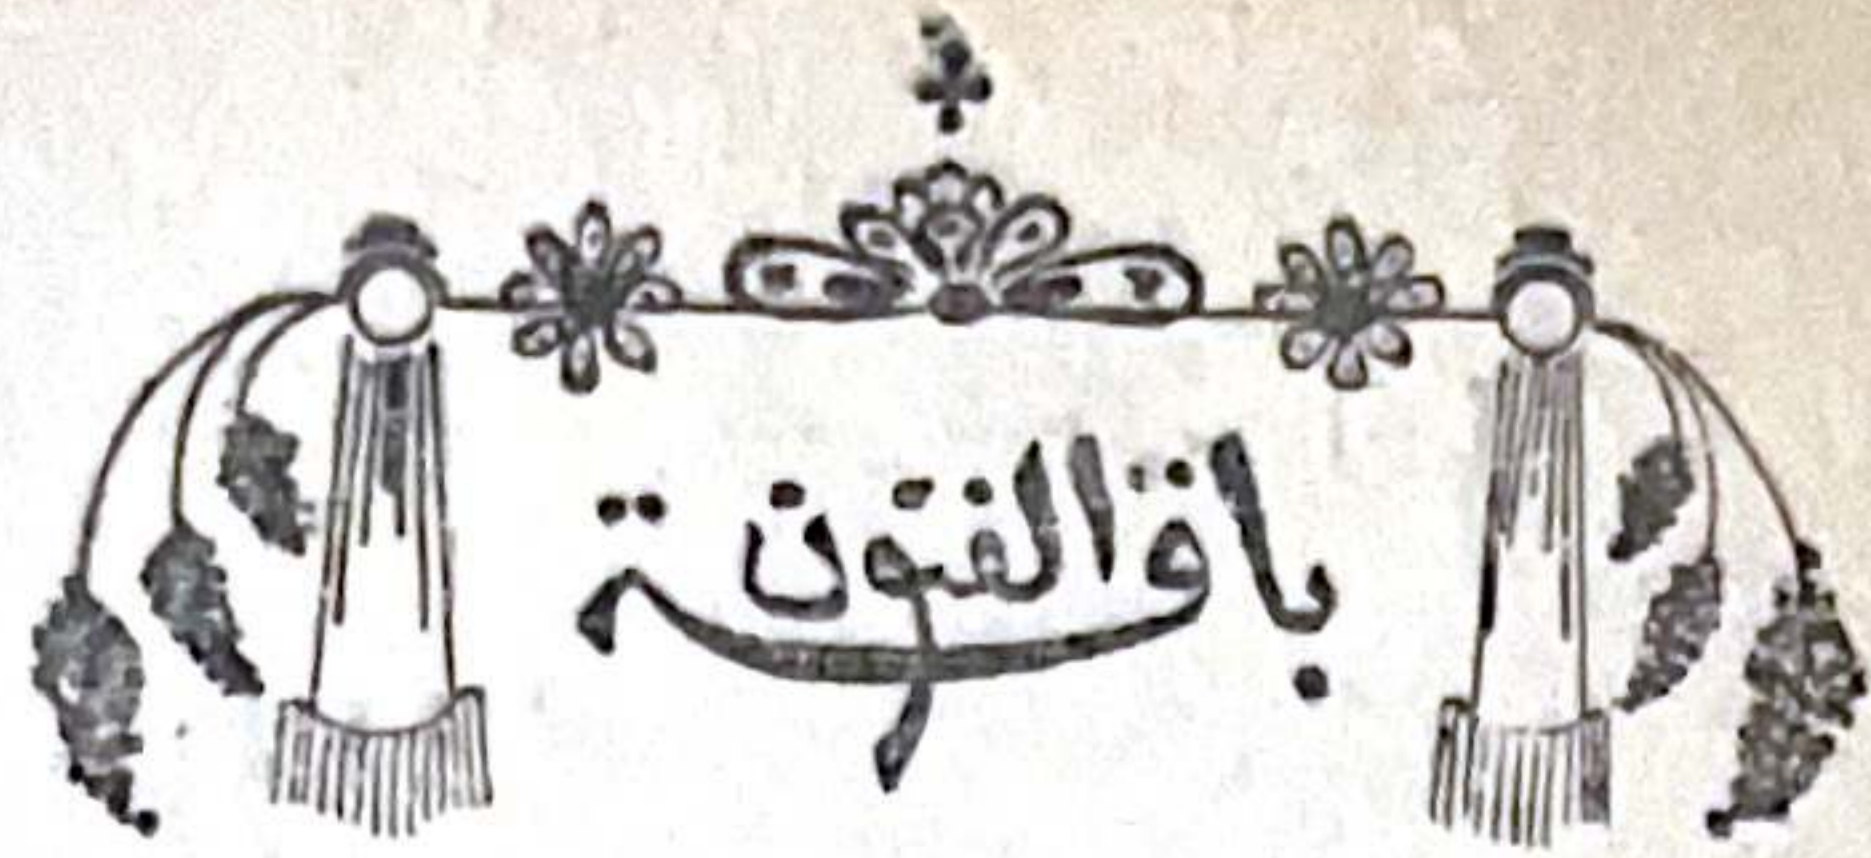 باقة الفتون